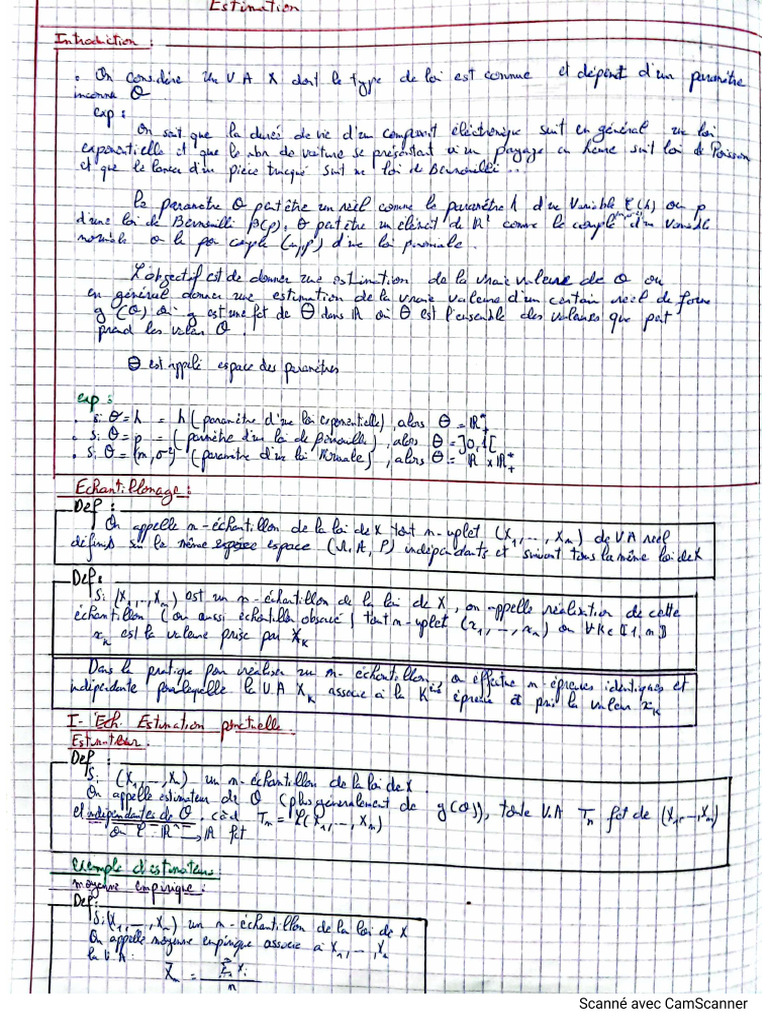 Estimation
Introduction :
. On considère un V.A X dont le type de loi est connue et dépent d'un paramètre
inconnu θ.
exp :
On sait que la durés de vie d'un composant éléctronique suit en général un loi
exponentielle et que le nbr de voiture se présentant a un payage en heure suit loi de Poisson
et que le lancer d'un pièce truqué suit une loi de Bernoulli..
le paramètre θ peut être un réel comme le paramètre λ d'un Variable ξ(λ) ou p
d'une loi de Bernoulli β(p), θ peut être un élément de ℝ² comme le couple d'un Variable
normale o le par couple d'une loi
L'objectif est de donner une estimation de la vraie valeure de θ ou
en général donner une estimation de la vraie valeure d'un certain réel de forme
g(θ) où g est une fct de Θ dans ℝ où Θ est l'ensemble des valeures que peut
prend les valeur θ.
Θ est appelé espace des paramètres
exp :
. si θ = λ = λ (paramètre d'une loi exponentielle), alors Θ = ℝ*₊
. si θ = p = (paramètre d'un loi de bernoulle), alors Θ = ]0,1[
. si θ = (m, σ²) (paramètre d'un loi Normale), alors Θ = ℝ × ℝ*₊
Echantillonage :
Def :
On appelle n-échantillon de la loi de X tout n-uplet (X₁, ..., Xₙ) de V.A réel
définis sur le même espace (Ω, A, P) indépendants et suivant tous la même loi de X
Def :
Si (X₁, ..., Xₙ) est un n-échantillon de la loi de X, on appelle réalisation de cette
échantillon (ou aussi échantillon observé) tout n-uplet (x₁, ..., xₙ) où ∀k ∈ ⟦1, n⟧
xₖ est la valeure prise par Xₖ
Dans la pratique pour réaliser un n-échantillon, on effectue n-épreuves identiques et
indépendante pour laquelle la V.A Xₖ associé à la Kⁱᵉ épreuve a pris la valeur xₖ
I- Ech. Estimation ponctuelle.
Estimateur.
Def :
Si (X₁, ..., Xₙ) un n-échantillon de la loi de X.
On appelle estimateur de θ (plus généralement de g(θ)), toute V.A Tₙ fct de (X₁, ..., Xₙ)
et indépendantes de θ. càd Tₙ = ℓ(X₁, ..., Xₙ)
où ℓ = ℝⁿ → ℝ fct
Exemple d'estimateur
moyenne empirique :
Def :
Si (X₁, ..., Xₙ) un n-échantillon de la loi de X
On appelle moyenne empirique associé à X₁, ..., Xₙ
la V.A :
X̄ₙ = Σ Xᵢ / n
Scanné avec CamScanner